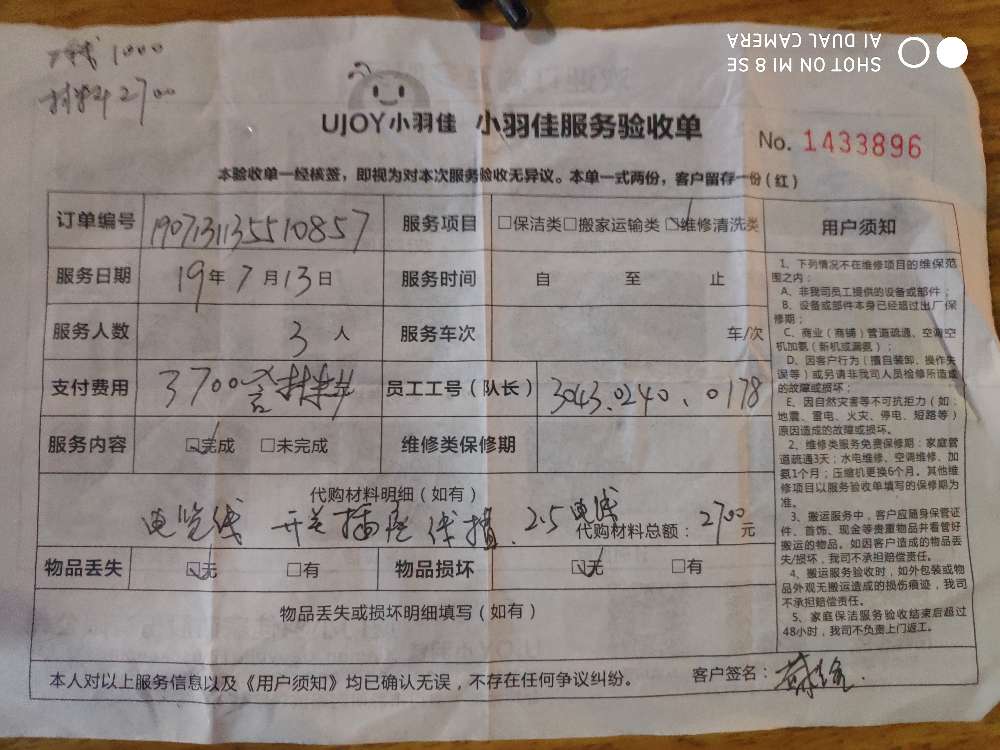 1000
材料2700
SHOT ON MI 8 SE
AI DUAL CAMERA
UJOY小羽佳 小羽佳服务验收单
No. 1433896
本验收单一经核签，即视为对本次服务验收无异议。本单一式两份，客户留存一份（红）
订单编号 1907131135510857 服务项目 □保洁类□搬家运输类☑维修清洗类
服务日期 19年7月13日 服务时间 自 至 止
服务人数 3人 服务车次 车/次
支付费用 3700含材料 员工工号（队长） 3043.0240、0178
服务内容 ☑完成 □未完成 维修类保修期
代购材料明细（如有）
电览线 开关插座 线槽 2.5电线 代购材料总额：2700元
物品丢失 ☑无 □有 物品损坏 ☑无 □有
物品丢失或损坏明细填写（如有）
本人对以上服务信息以及《用户须知》均已确认无误，不存在任何争议纠纷。 客户签名：
用户须知
1、下列情况不在维修项目的维保范
围之内：
A、非我司员工提供的设备或部件；
B、设备或部件本身已经超过出厂保
修期；
C、商业（商铺）管道疏通、空调空
机加氨（新机或漏氨）；
D、因客户行为（擅自装卸、操作失
误等）或另请非我司人员检修所造成
的故障或损坏；
E、因自然灾害等不可抗拒力（如：
地震、雷电、火灾、停电、短路等）
原因造成的故障或损坏。
2、维修类服务免费保修期：家庭管
道疏通3天；水电维修、空调维修、加
氨1个月；压缩机更换6个月。其他维
修项目以服务验收单填写的保修期为
准。
3、搬运服务中，客户应随身保管证
件、首饰、现金等贵重物品并看管好
搬运的物品。如因客户造成的物品丢
失/损坏，我司不承担赔偿责任。
4、搬运服务验收时，如外包装或物
品外观无搬运造成的损伤痕迹，我司
不承担赔偿责任。
5、家庭保洁服务验收结束后超过
48小时，我司不负责上门返工。